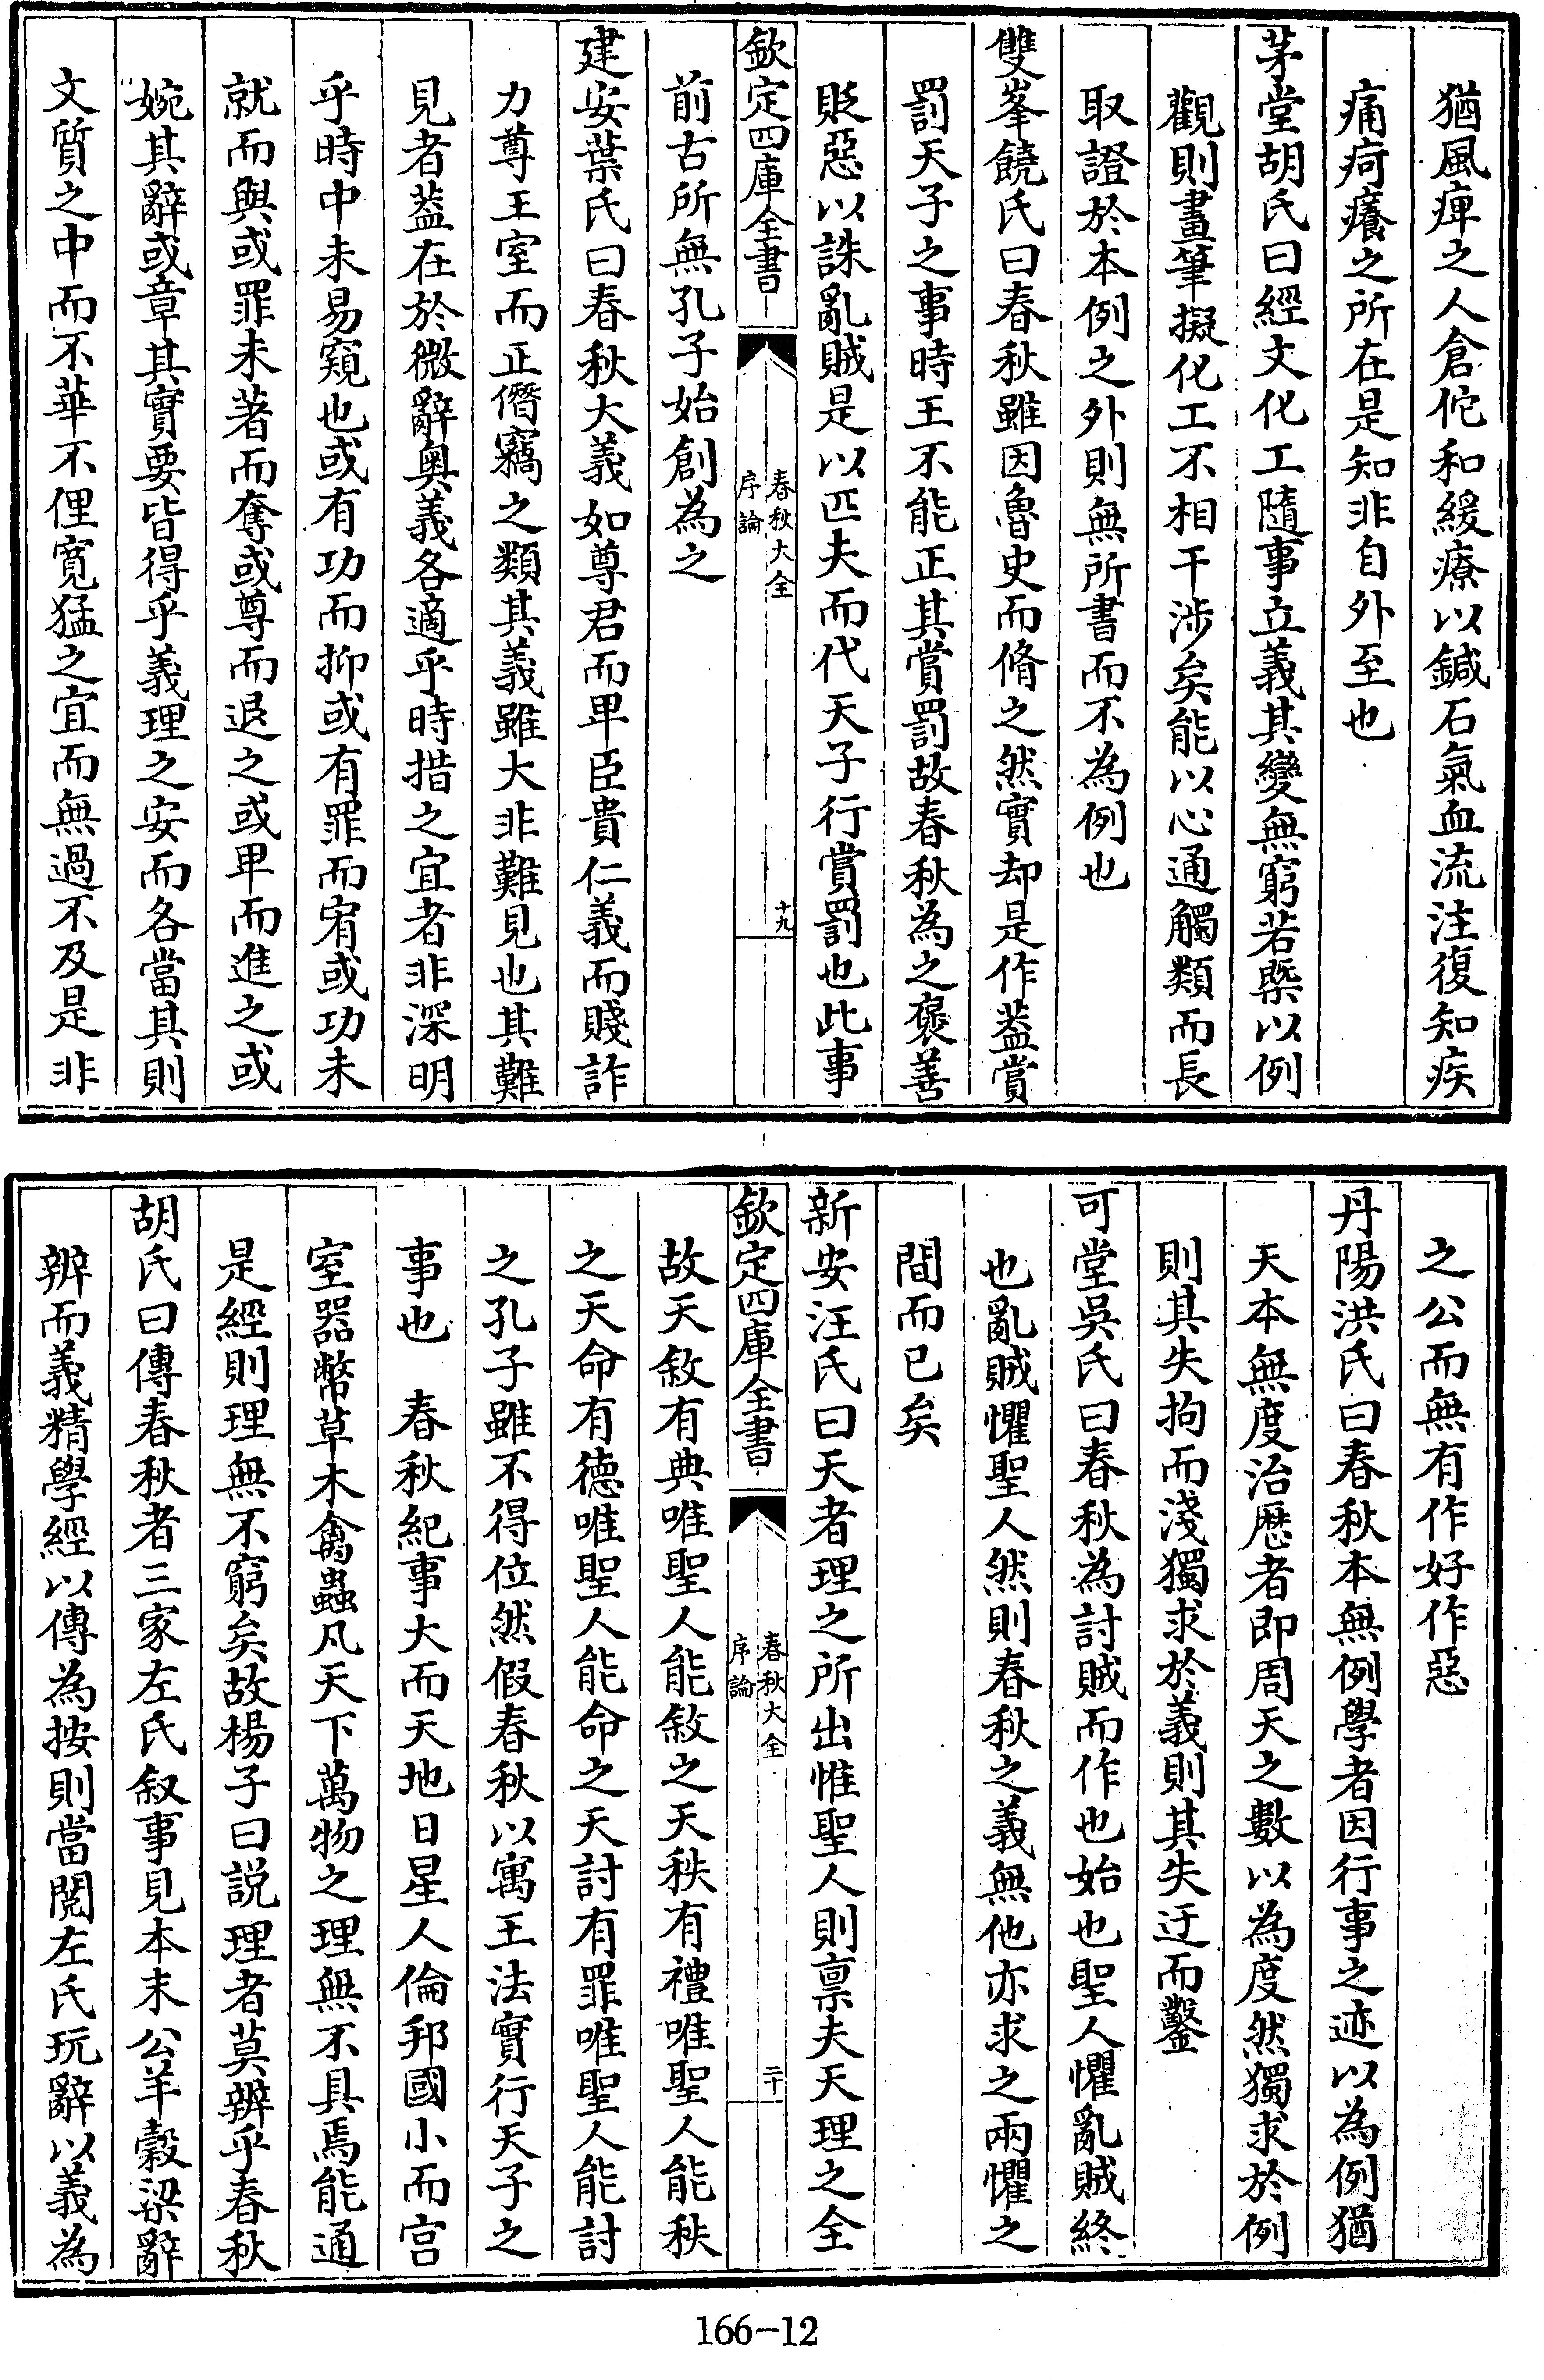 猶風痺之人倉佗和緩療以鍼石氣血流注復知疾
痛疴癢之所在是知非自外至也
茅堂胡氏曰經文化工隨事立義其變無窮若槩以例
觀則畫筆擬化工不相干涉矣能以心通觸類而長
取證於本例之外則無所書而不為例也
雙峯饒氏曰春秋雖因魯史而脩之然實却是作葢賞
罰天子之事時王不能正其賞罰故春秋為之褒善
貶惡以誅亂賊是以匹夫而代天子行賞罰也此事
欽定四庫全書
春秋大全
序論
十九
前古所無孔子始創為之
建安葉氏曰春秋大義如尊君而卑臣貴仁義而賤詐
力尊王室而正僭竊之類其義雖大非難見也其難
見者葢在於微辭奥義各適乎時措之宜者非深明
乎時中未易窺也或有功而抑或有罪而宥或功未
就而與或罪未著而奪或尊而退之或卑而進之或
婉其辭或章其實要皆得乎義理之安而各當其則
文質之中而不華不俚寛猛之宜而無過不及是非
之公而無有作好作惡
丹陽洪氏曰春秋本無例學者因行事之迹以為例猶
天本無度治厯者即周天之數以為度然獨求於例
則其失拘而淺獨求於義則其失迂而鑿
可堂吳氏曰春秋為討賊而作也始也聖人懼亂賊終
也亂賊懼聖人然則春秋之義無他亦求之兩懼之
間而已矣
新安汪氏曰天者理之所出惟聖人則禀夫天理之全
欽定四庫全書
春秋大全
序論
二十
故天敘有典唯聖人能敘之天秩有禮唯聖人能秩
之天命有德唯聖人能命之天討有罪唯聖人能討
之孔子雖不得位然假春秋以寓王法實行天子之
事也　春秋紀事大而天地日星人倫邦國小而宫
室器幣草木禽蟲凡天下萬物之理無不具焉能通
是經則理無不窮矣故楊子曰説理者莫辨乎春秋
胡氏曰傳春秋者三家左氏叙事見本末公羊穀梁辭
辨而義精學經以傳為按則當閲左氏玩辭以義為
166-12